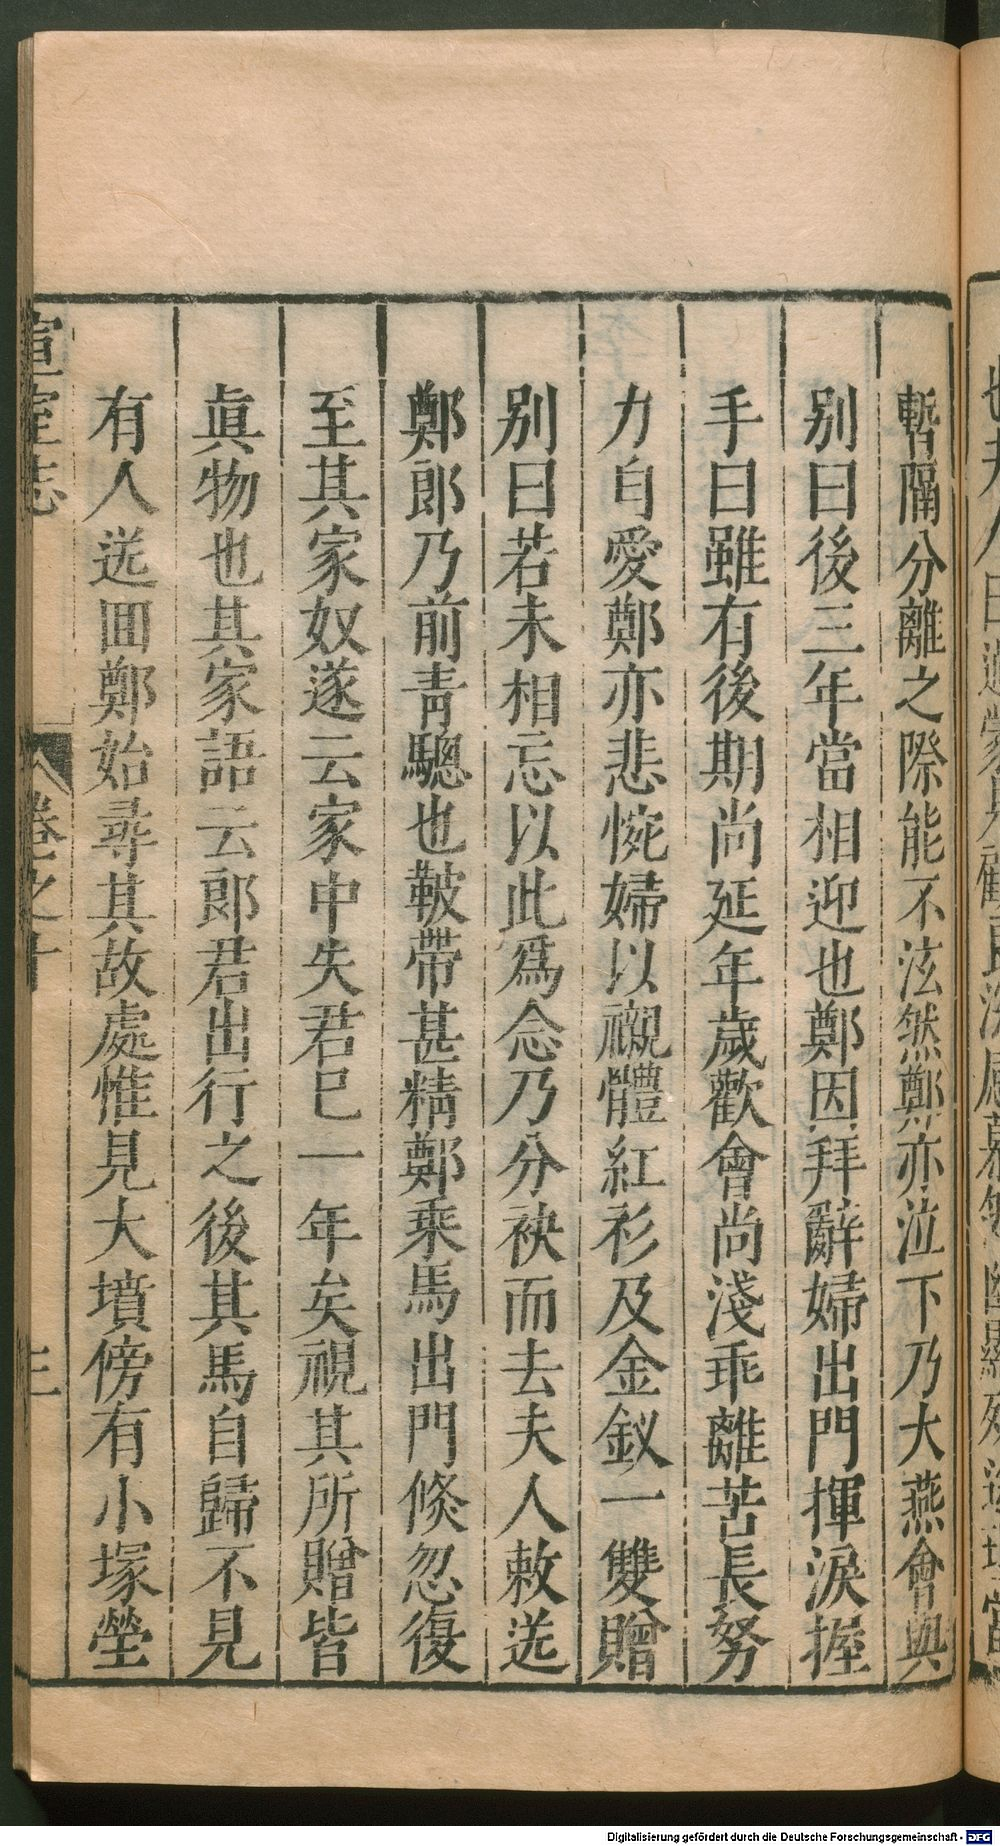 暫隔分離之際能不泫然鄭亦泣下乃大燕會與
别曰後三年當相迎也鄭因拜辭婦出門揮淚握
手曰雖有後期尚延年歲歡會尚淺乖離苦長努
力自愛鄭亦悲惋婦以襯體紅衫及金釵一雙贈
别曰若未相忘以此爲念乃分袂而去夫人敕送
鄭郎乃前青驄也鞁帶甚精鄭乘馬出門倏忽復
至其家奴遂云家中失君已一年矣視其所贈皆
眞物也其家語云郎君出行之後其馬自歸不見
有人送囬鄭始尋其故處惟見大墳傍有小塚塋
宣室志
卷之十
三
Digitalisierung gefördert durch die Deutsche Forschungsgemeinschaft - DFG